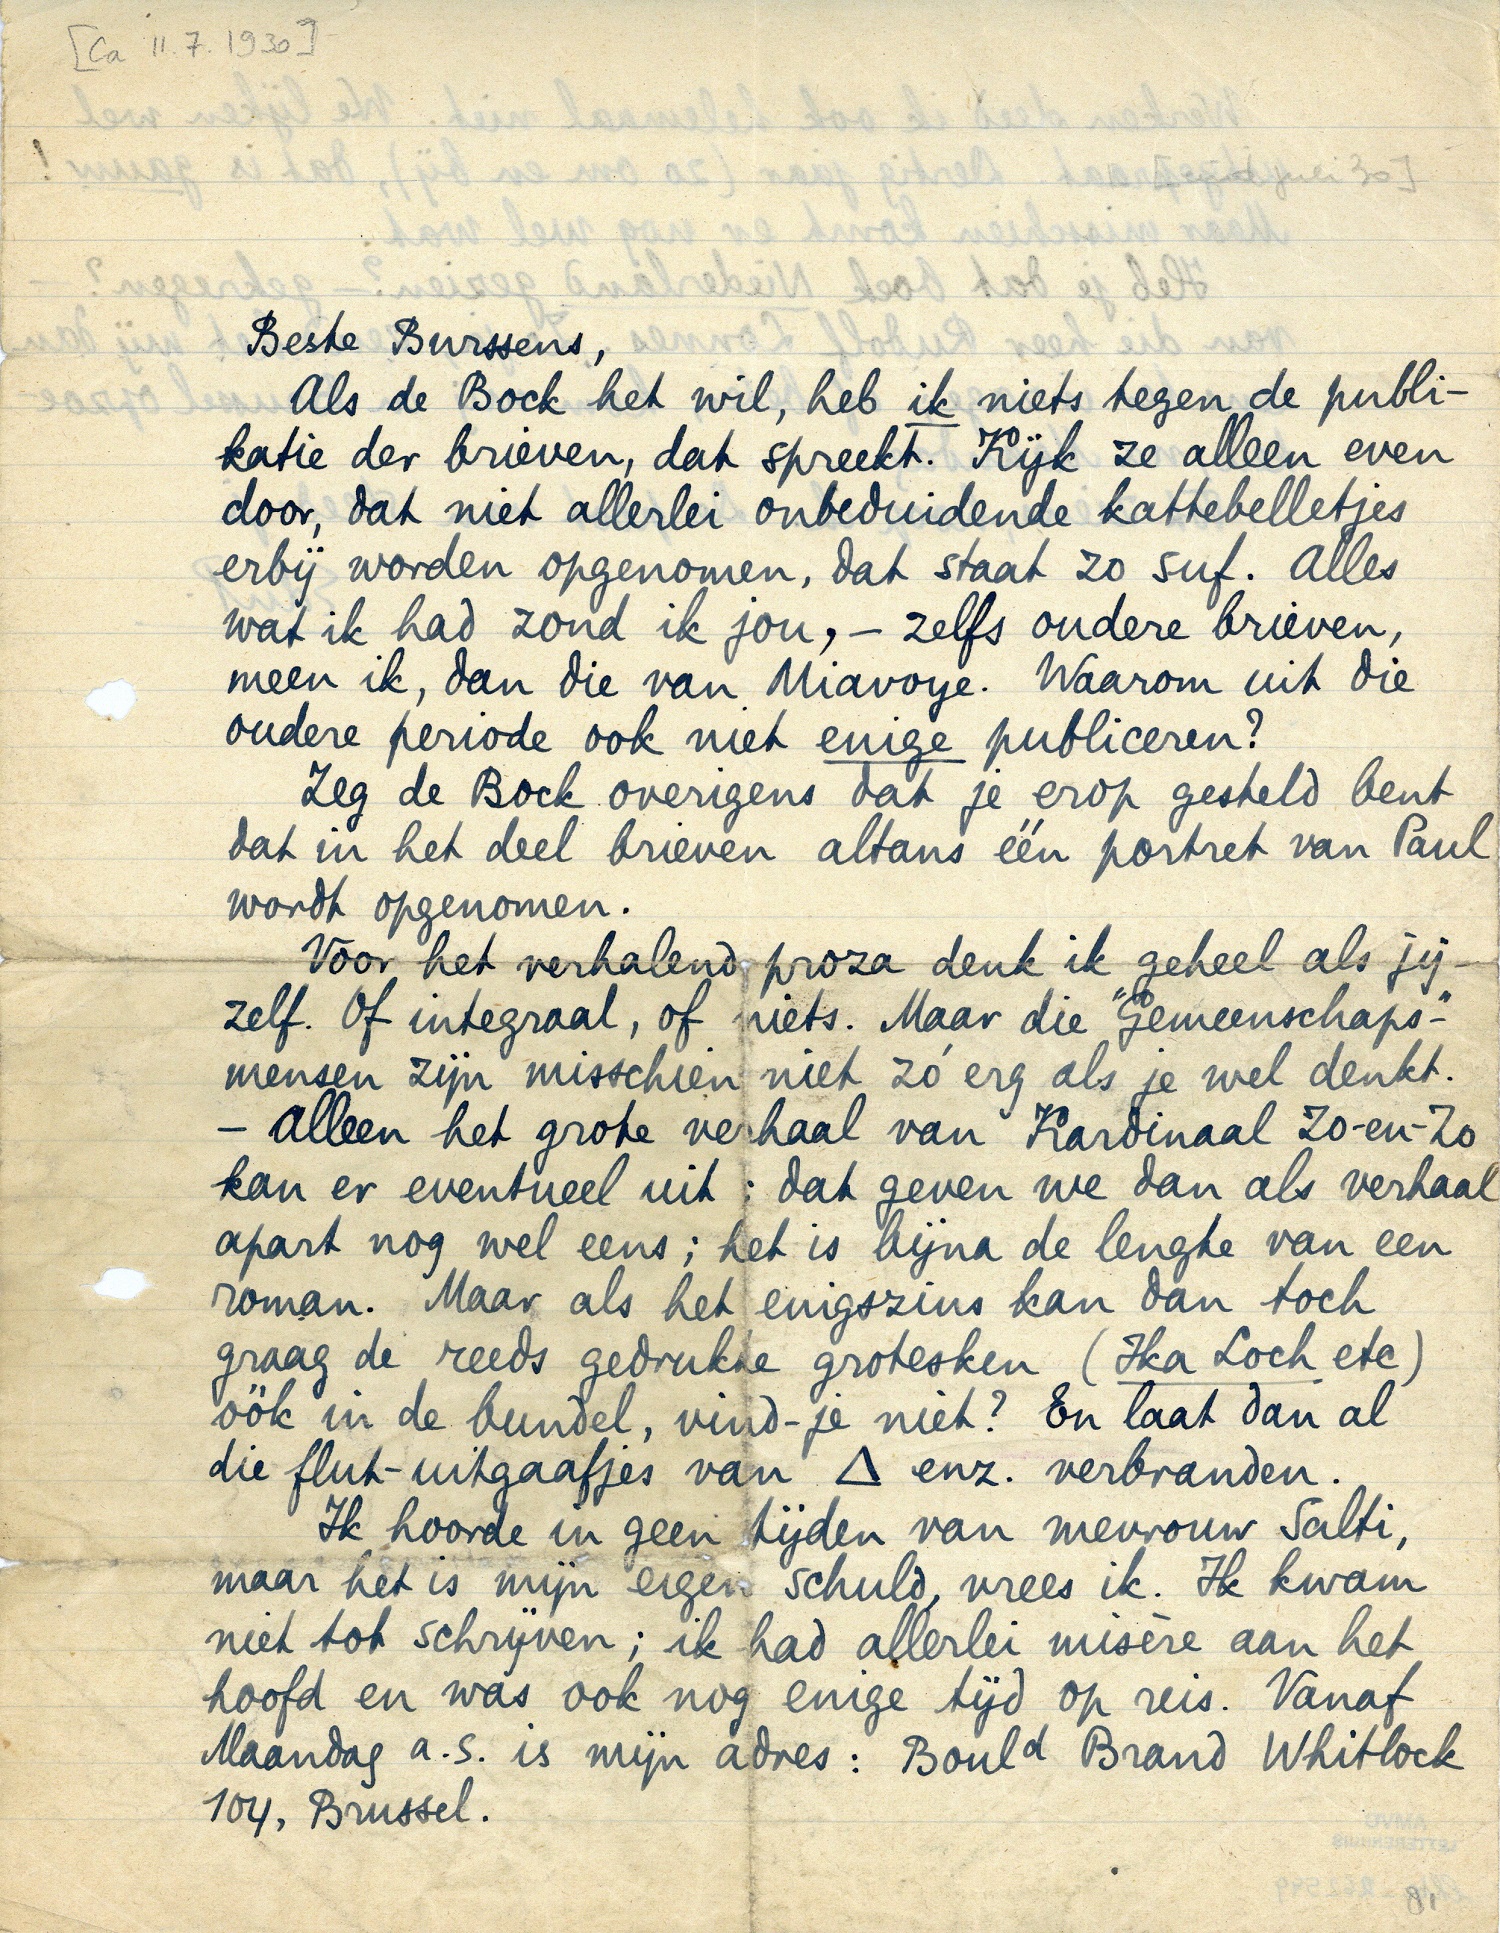 [Ca 11.7.1930]
Beste Burssens,
Als de Bock het wil, heb ik niets tegen de publi-
katie der brieven, dat spreekt. Kijk ze alleen even
door, dat niet allerlei onbeduidende kattebelletjes
erbij worden opgenomen, dat staat zo suf. Alles
wat ik had zond ik jou, – zelfs oudere brieven,
meen ik, dan die van Miavoye. Waarom uit die
oudere periode ook niet enige publiceren?
Zeg de Bock overigens dat je erop gesteld bent
dat in het deel brieven altans één portret van Paul
wordt opgenomen.
Voor het verhalend proza denk ik geheel als jij-
zelf. Of integraal, of niets. Maar die "Gemeenschaps"-
mensen zijn misschien niet zó erg als je wel denkt.
– Alleen het grote verhaal van Kardinaal Zo-en-Zo
kan er eventueel uit : dat geven we dan als verhaal
apart nog wel eens ; het is bijna de lengte van een
roman. Maar als het enigszins kan dan toch
graag de reeds gedrukte grotesken (Ika Loch etc)
óók in de bundel, vind-je niet? En laat dan al
die flut-uitgaafjes van Δ enz. verbranden.
Ik hoorde in geen tijden van mevrouw Salti,
maar het is mijn eigen schuld, vrees ik. Ik kwam
niet tot schrijven ; ik had allerlei misère aan het
hoofd en was ook nog enige tijd op reis. Vanaf
Maandag a.s. is mijn adres : Bould Brand Whitlock
104, Brussel.